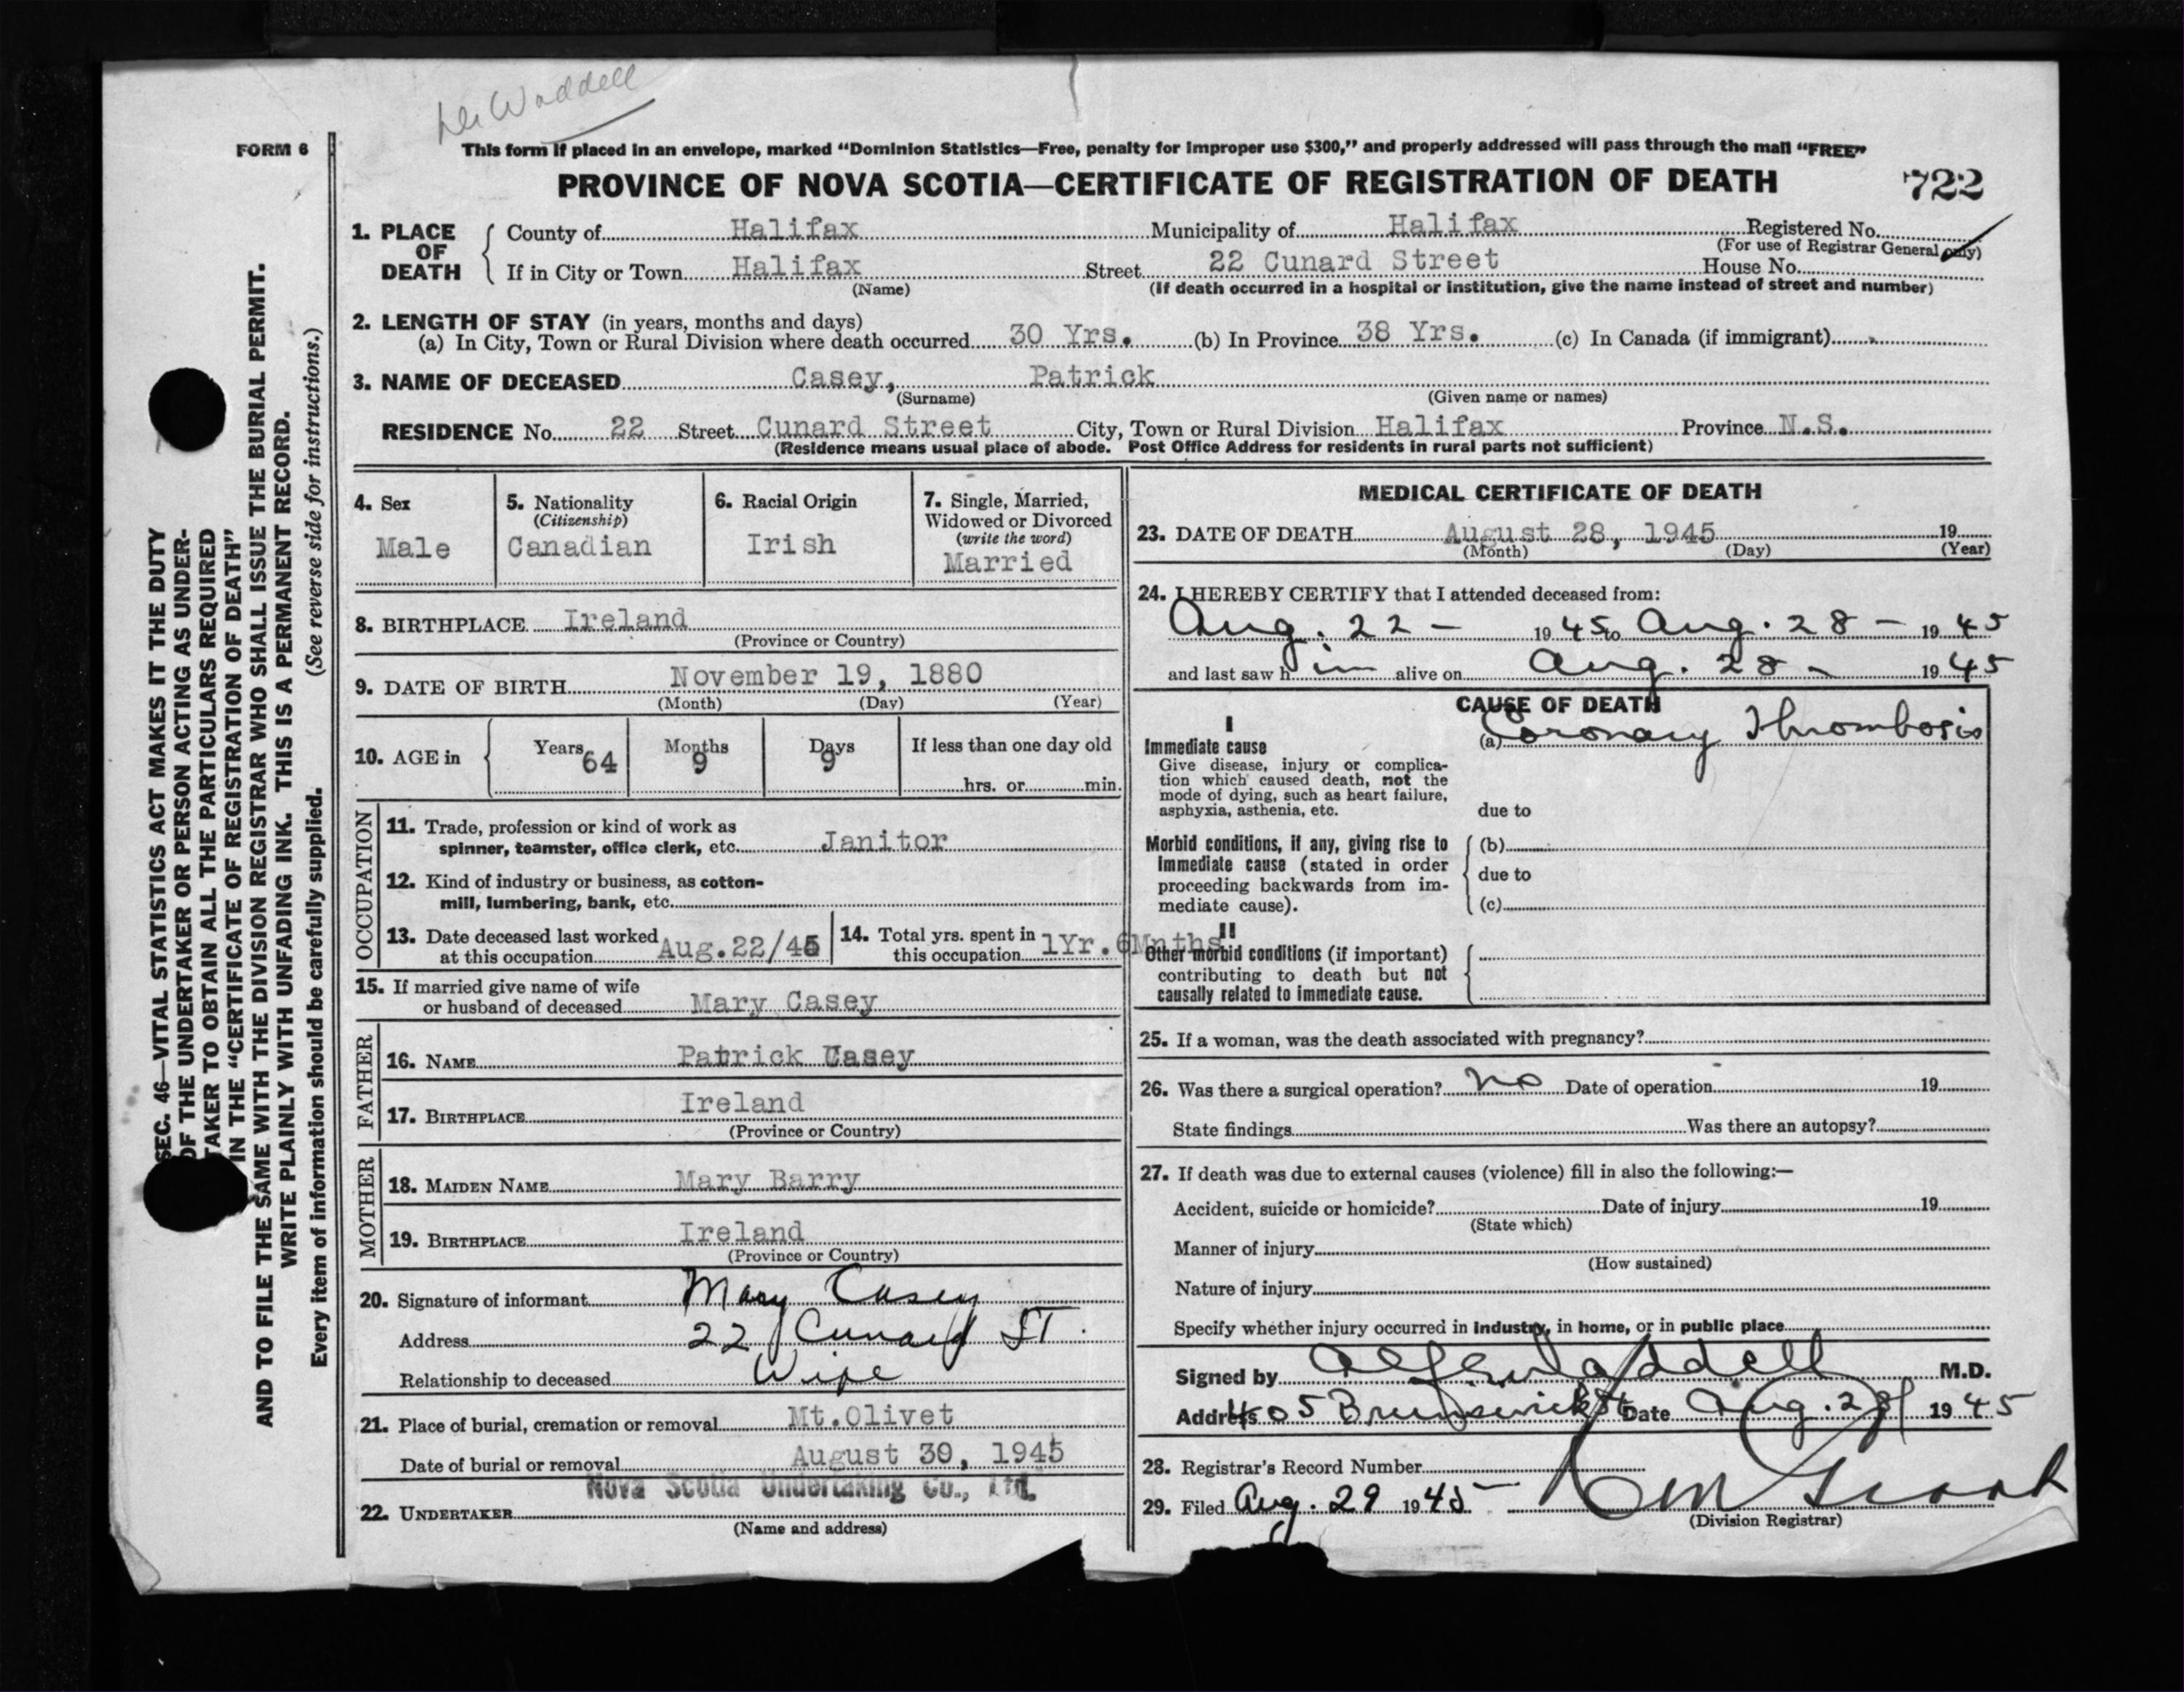 Dr Waddell
FORM 6
This form if placed in an envelope, marked “Dominion Statistics—Free, penalty for improper use $300,” and properly addressed will pass through the mail “FREE”
PROVINCE OF NOVA SCOTIA—CERTIFICATE OF REGISTRATION OF DEATH 722
1. PLACE OF DEATH County of Halifax Municipality of Halifax Registered No.
(For use of Registrar General only)
If in City or Town Halifax Street 22 Cunard Street House No.
(Name) (If death occurred in a hospital or institution, give the name instead of street and number)
2. LENGTH OF STAY (in years, months and days)
(a) In City, Town or Rural Division where death occurred 30 Yrs. (b) In Province 38 Yrs. (c) In Canada (if immigrant)
3. NAME OF DECEASED Casey, Patrick
(Surname) (Given name or names)
RESIDENCE No. 22 Street Cunard Street City, Town or Rural Division Halifax Province N.S.
(Residence means usual place of abode. Post Office Address for residents in rural parts not sufficient)
4. Sex
Male
5. Nationality
(Citizenship)
Canadian
6. Racial Origin
Irish
7. Single, Married,
Widowed or Divorced
(write the word)
Married
8. BIRTHPLACE Ireland
(Province or Country)
9. DATE OF BIRTH November 19, 1880
(Month) (Day) (Year)
10. AGE in Years 64 Months 9 Days 9 If less than one day old
hrs. or min.
OCCUPATION
11. Trade, profession or kind of work as
spinner, teamster, office clerk, etc. Janitor
12. Kind of industry or business, as cotton-
mill, lumbering, bank, etc.
13. Date deceased last worked
at this occupation Aug.22/45
14. Total yrs. spent in
this occupation 1Yr.6Mnths
15. If married give name of wife
or husband of deceased Mary Casey
FATHER
16. NAME Patrick Casey
17. BIRTHPLACE Ireland
(Province or Country)
MOTHER
18. MAIDEN NAME Mary Barry
19. BIRTHPLACE Ireland
(Province or Country)
20. Signature of informant Mary Casey
Address 22 Cunard ST.
Relationship to deceased Wife
21. Place of burial, cremation or removal Mt.Olivet
Date of burial or removal August 30, 1945
Nova Scotia Undertaking Co., Ltd.
22. UNDERTAKER
(Name and address)
MEDICAL CERTIFICATE OF DEATH
23. DATE OF DEATH August 28, 1945 19
(Month) (Day) (Year)
24. I HEREBY CERTIFY that I attended deceased from:
Aug. 22 - 1945 to Aug. 28 - 1945
and last saw him alive on Aug. 28 - 1945
CAUSE OF DEATH
I
Immediate cause (a) Coronary Thrombosis
Give disease, injury or complica-
tion which caused death, not the
mode of dying, such as heart failure,
asphyxia, asthenia, etc. due to
Morbid conditions, if any, giving rise to (b)
immediate cause (stated in order
proceeding backwards from im- due to
mediate cause). (c)
II
Other morbid conditions (if important)
contributing to death but not
causally related to immediate cause.
25. If a woman, was the death associated with pregnancy?
26. Was there a surgical operation? no Date of operation 19
State findings Was there an autopsy?
27. If death was due to external causes (violence) fill in also the following:—
Accident, suicide or homicide? Date of injury 19
(State which)
Manner of injury
(How sustained)
Nature of injury
Specify whether injury occurred in industry, in home, or in public place
Signed by Waddell M.D.
Address 405 Brunswick St Date Aug. 28 1945
28. Registrar's Record Number
29. Filed Aug. 29 1945
(Division Registrar)
SEC. 46—VITAL STATISTICS ACT MAKES IT THE DUTY
OF THE UNDERTAKER OR PERSON ACTING AS UNDER-
TAKER TO OBTAIN ALL THE PARTICULARS REQUIRED
IN THE “CERTIFICATE OF REGISTRATION OF DEATH”
AND TO FILE THE SAME WITH THE DIVISION REGISTRAR WHO SHALL ISSUE THE BURIAL PERMIT.
WRITE PLAINLY WITH UNFADING INK. THIS IS A PERMANENT RECORD.
Every item of information should be carefully supplied. (See reverse side for instructions.)